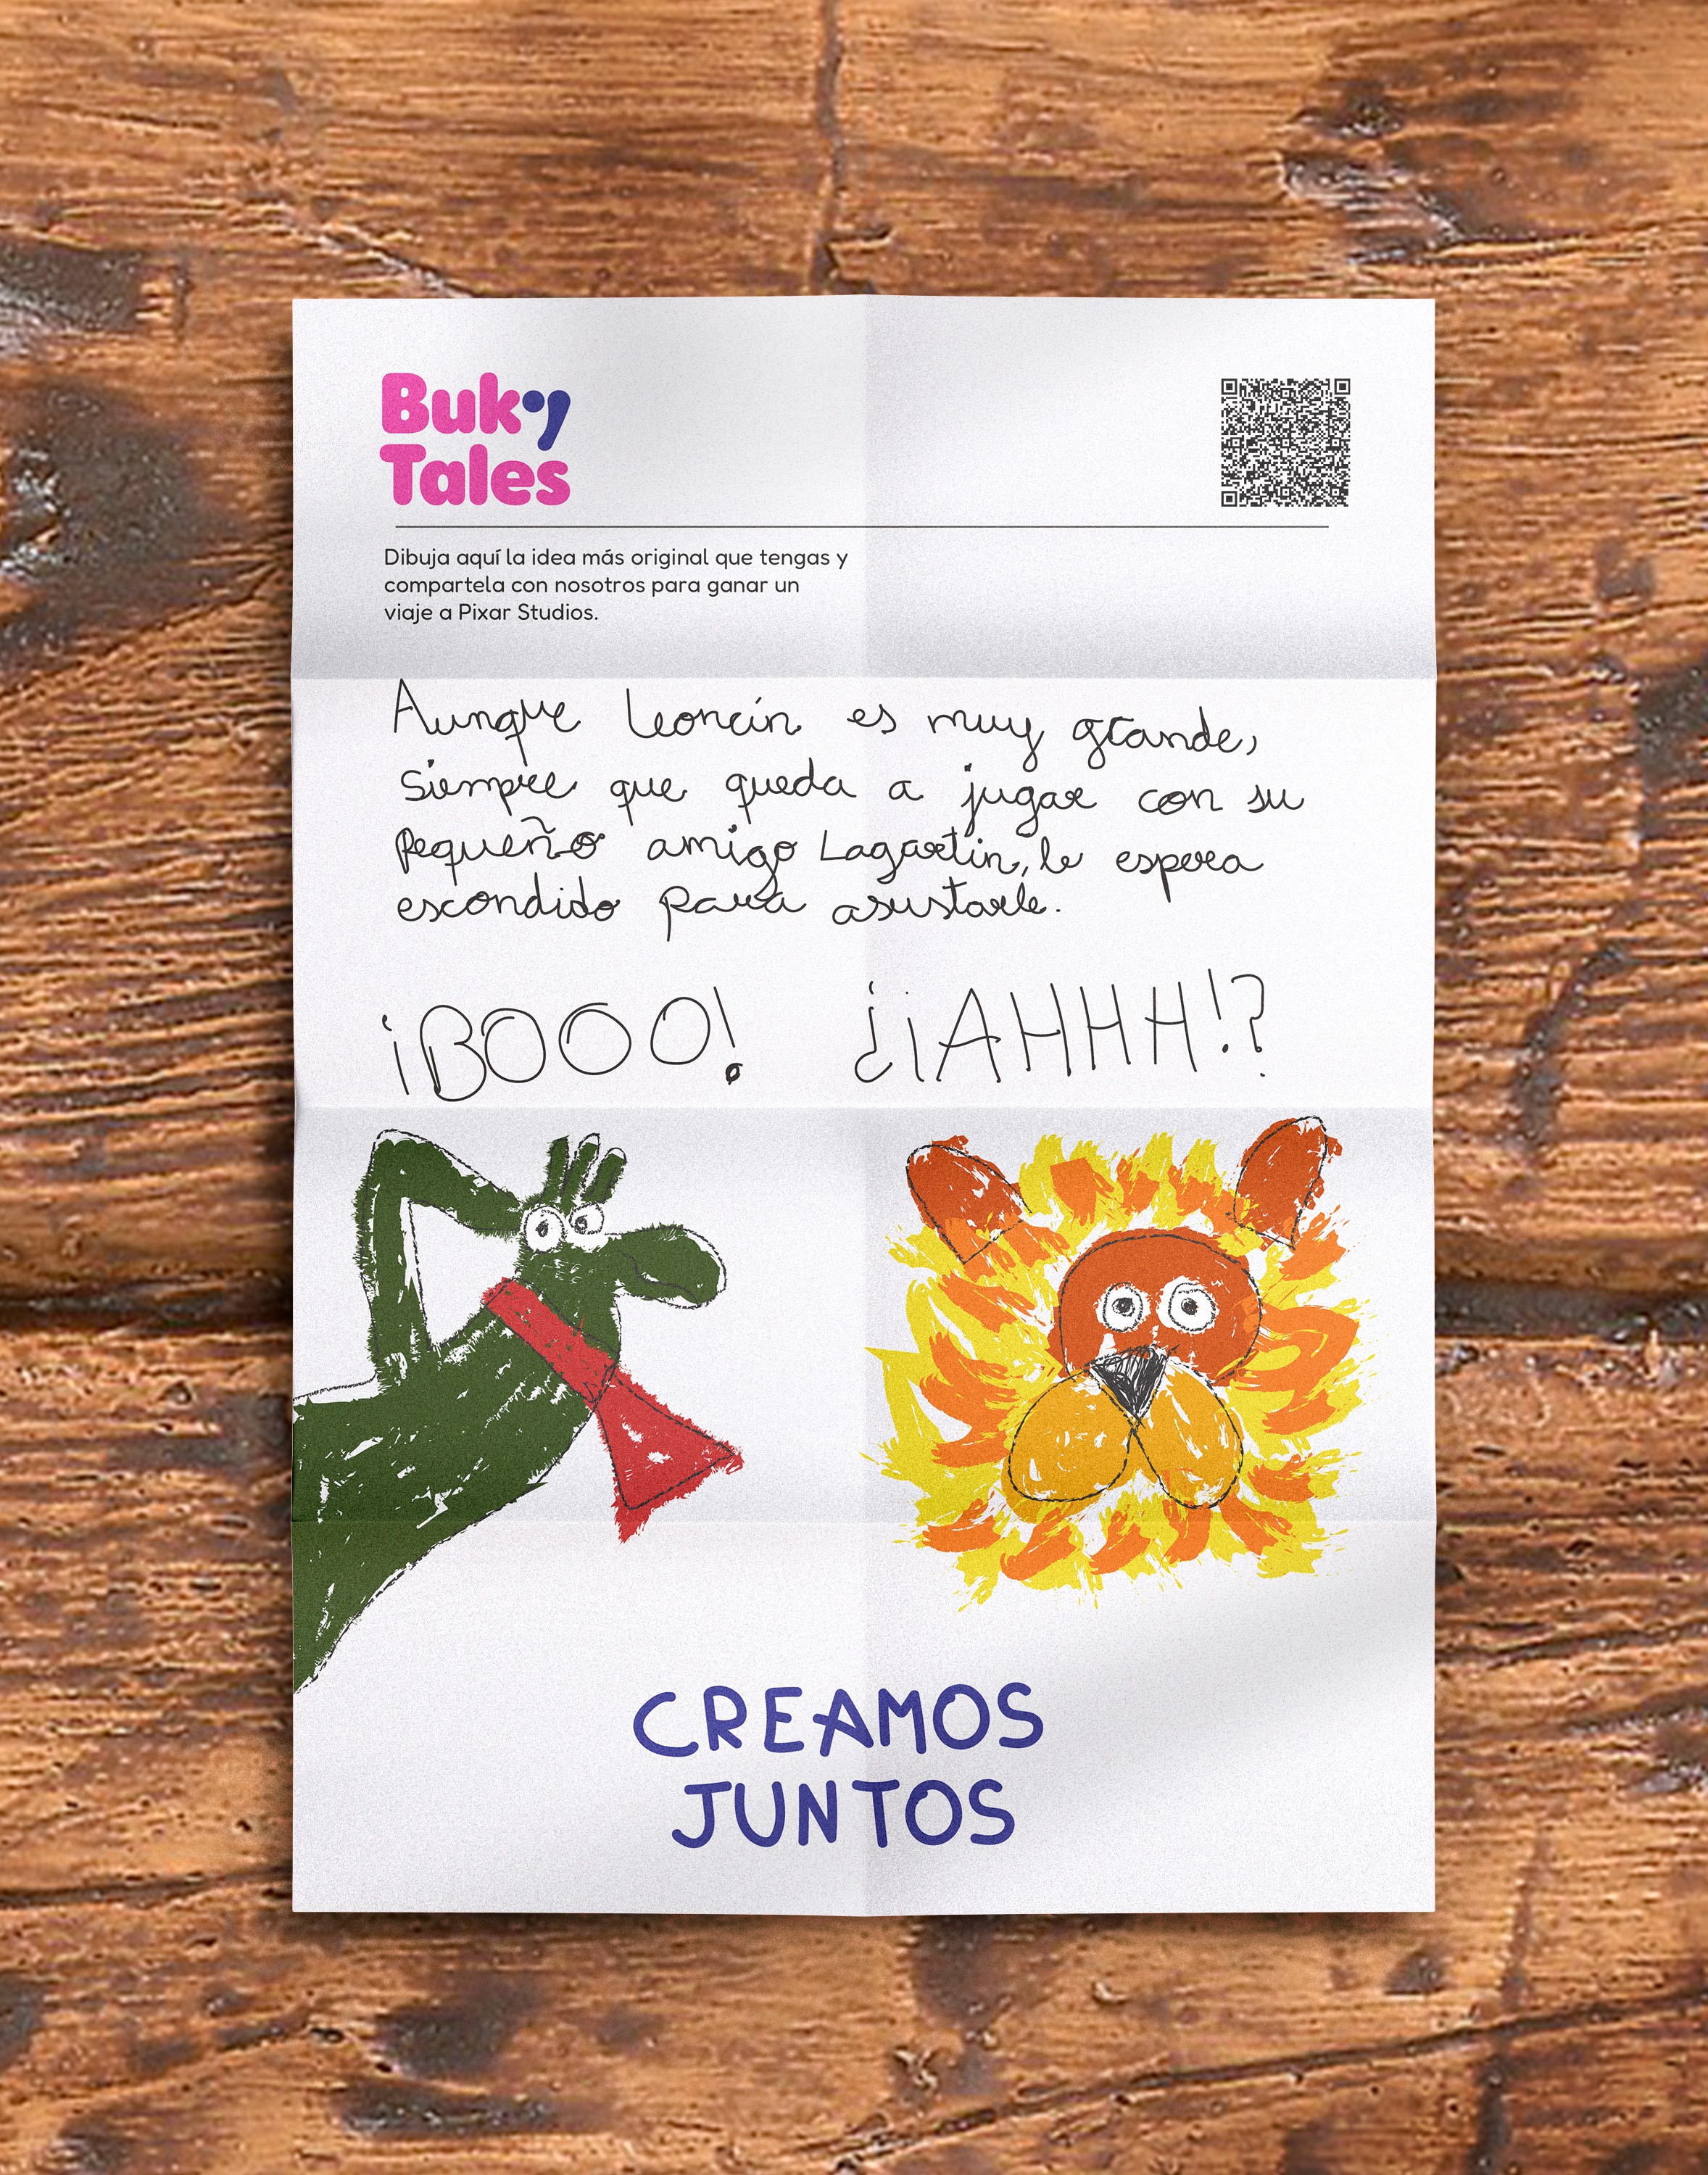 Buky
Tales
Dibuja aquí la idea más original que tengas y
compartela con nosotros para ganar un
viaje a Pixar Studios.
Aunque Leoncín es muy grande,
Siempre que queda a jugar con su
Pequeño amigo Lagartin, le espera
escondido para asustarle.
¡BOOO! ¿¡AHHH!?
CREAMOS
JUNTOS